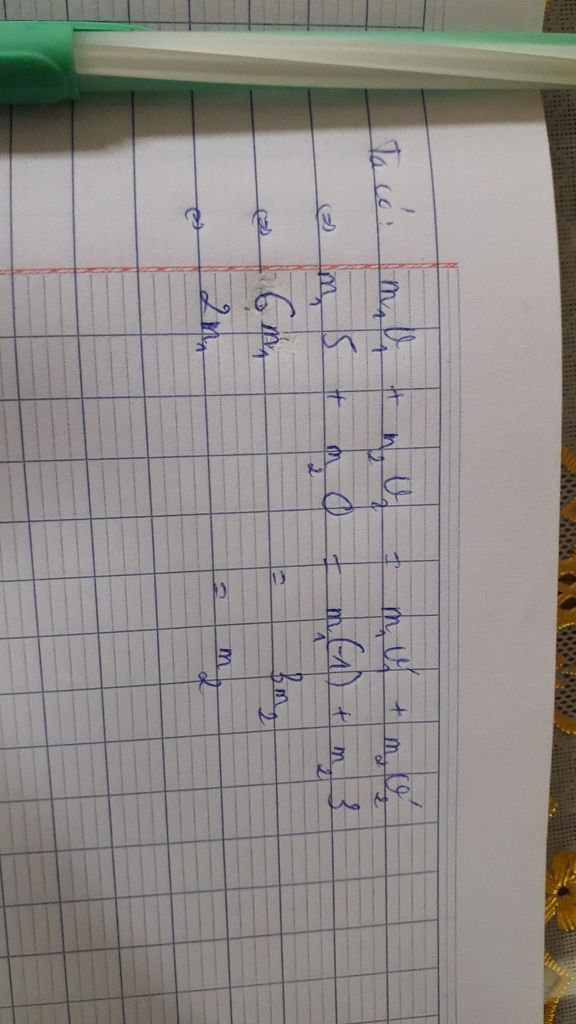 Ta có: m₁v₁ + m₂v₂ = m₁v₁' + m₂v₂'
(=) m₁ 5 + m₂ 0 = m₁(-1) + m₂ 3
(=) 6 m₁ = 3m₂
(=) 2m₁ = m₂